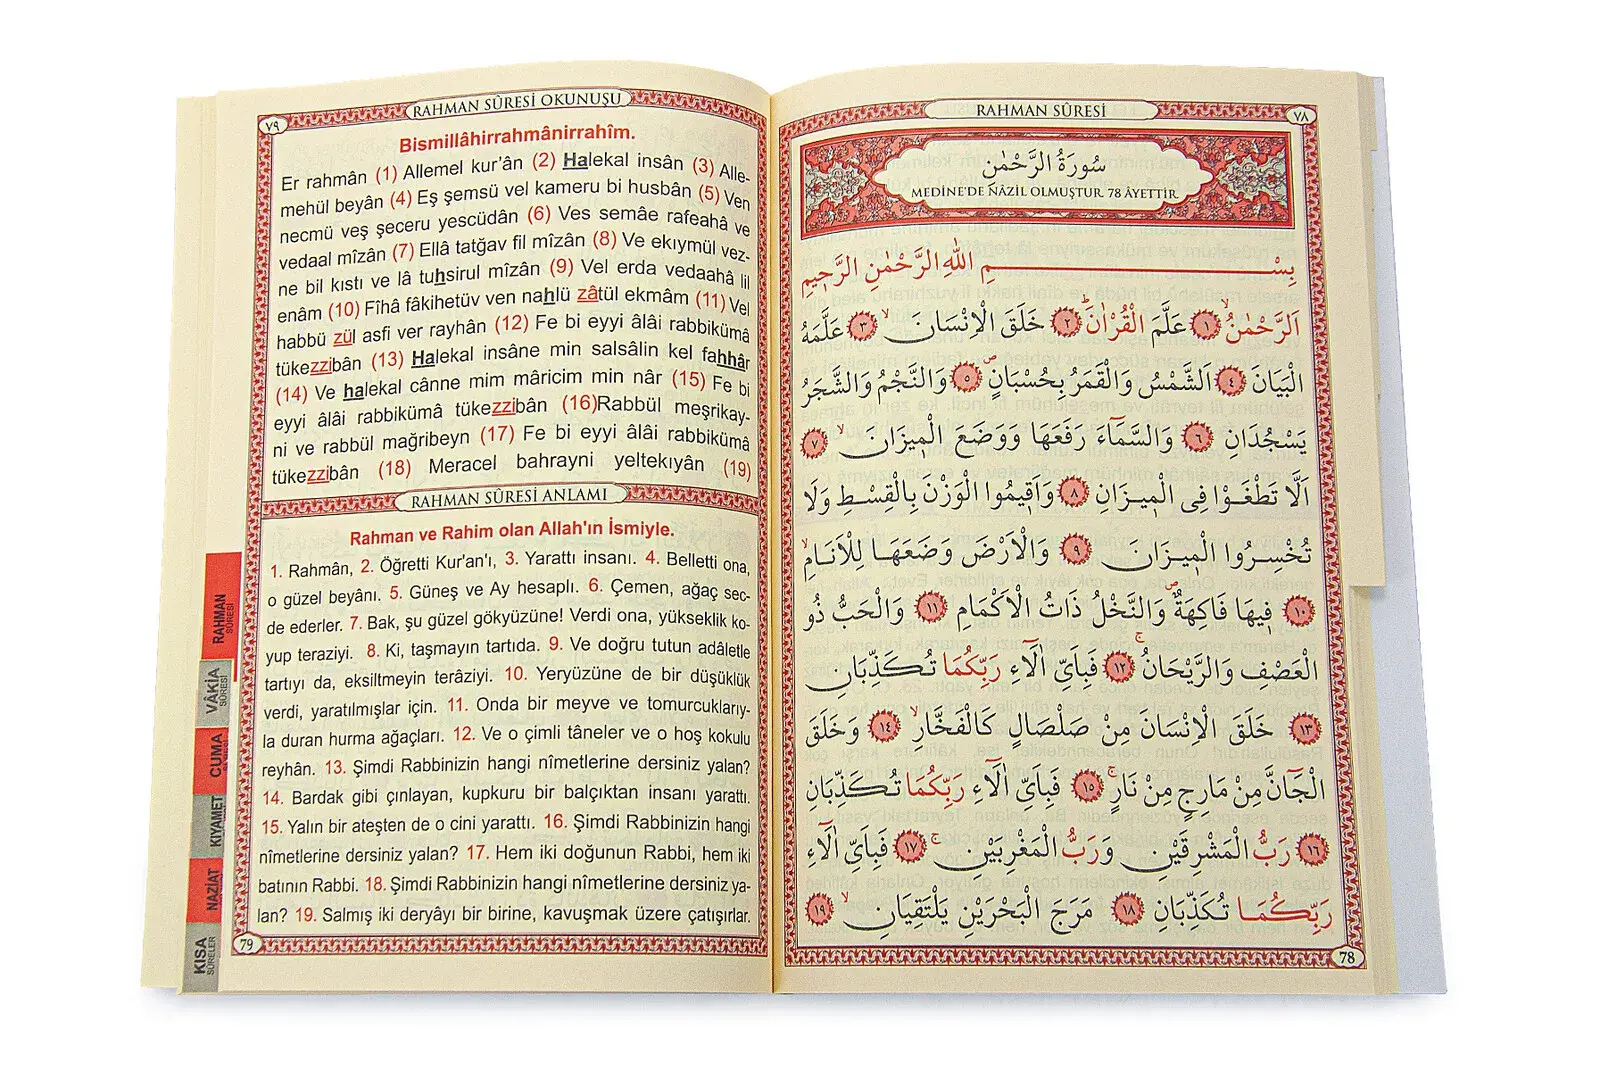 RAHMAN SÛRESİ
٧٨
سُورَةُ الرَّحْمٰنِ
MEDİNE'DE NÂZİL OLMUŞTUR 78 ÂYETTİR
بِسْــــــــمِ اللّٰهِ الرَّحْمٰنِ الرَّح۪يمِ
اَلرَّحْمٰنُۙ ﴿١﴾ عَلَّمَ الْقُرْاٰنَۜ ﴿٢﴾ خَلَقَ الْاِنْسَانَۙ ﴿٣﴾ عَلَّمَهُ
الْبَيَانَ ﴿٤﴾ اَلشَّمْسُ وَالْقَمَرُ بِحُسْبَانٍۖ ﴿٥﴾ وَالنَّجْمُ وَالشَّجَرُ
يَسْجُدَانِ ﴿٦﴾ وَالسَّمَٓاءَ رَفَعَهَا وَوَضَعَ الْم۪يزَانَۙ ﴿٧﴾
اَلَّا تَطْغَوْا فِي الْم۪يزَانِ ﴿٨﴾ وَاَق۪يمُوا الْوَزْنَ بِالْقِسْطِ وَلَا
تُخْسِرُوا الْم۪يزَانَ ﴿٩﴾ وَالْاَرْضَ وَضَعَهَا لِلْاَنَامِۙ
﴿١٠﴾ ف۪يهَا فَاكِهَةٌۖ وَالنَّخْلُ ذَاتُ الْاَكْمَامِ ﴿١١﴾ وَالْحَبُّ ذُو
الْعَصْفِ وَالرَّيْحَانُۚ ﴿١٢﴾ فَبِاَيِّ اٰلَٓاءِ رَبِّكُمَا تُكَذِّبَانِ
﴿١٣﴾ خَلَقَ الْاِنْسَانَ مِنْ صَلْصَالٍ كَالْفَخَّارِۙ ﴿١٤﴾ وَخَلَقَ
الْجَٓانَّ مِنْ مَارِجٍ مِنْ نَارٍۚ ﴿١٥﴾ فَبِاَيِّ اٰلَٓاءِ رَبِّكُمَا تُكَذِّبَانِ
﴿١٦﴾ رَبُّ الْمَشْرِقَيْنِ وَرَبُّ الْمَغْرِبَيْنِۚ ﴿١٧﴾ فَبِاَيِّ اٰلَٓاءِ
رَبِّكُمَا تُكَذِّبَانِ ﴿١٨﴾ مَرَجَ الْبَحْرَيْنِ يَلْتَقِيَانِۙ ﴿١٩﴾
78
٧٩
RAHMAN SÛRESİ OKUNUŞU
Bismillâhirrahmânirrahîm.
Er rahmân (1) Allemel kur'ân (2) Halekal insân (3) Alle-
mehül beyân (4) Eş şemsü vel kameru bi husbân (5) Ven
necmü veş şeceru yescüdân (6) Ves semâe rafeahâ ve
vedaal mîzân (7) Ellâ tatğav fil mîzân (8) Ve ekıymül vez-
ne bil kıstı ve lâ tuhsirul mîzân (9) Vel erda vedaahâ lil
enâm (10) Fîhâ fâkihetüv ven nahlü zâtül ekmâm (11) Vel
habbü zül asfi ver rayhân (12) Fe bi eyyi âlâi rabbikümâ
tükezzibân (13) Halekal insâne min salsâlin kel fahhâr
(14) Ve halekal cânne mim mâricim min nâr (15) Fe bi
eyyi âlâi rabbikümâ tükezzibân (16)Rabbül meşrikay-
ni ve rabbül mağribeyn (17) Fe bi eyyi âlâi rabbikümâ
tükezzibân (18) Meracel bahrayni yeltekıyân (19)
RAHMAN SÛRESİ ANLAMI
Rahman ve Rahim olan Allah'ın İsmiyle.
1. Rahmân, 2. Öğretti Kur'an'ı, 3. Yarattı insanı. 4. Belletti ona,
o güzel beyânı. 5. Güneş ve Ay hesaplı. 6. Çemen, ağaç sec-
de ederler. 7. Bak, şu güzel gökyüzüne! Verdi ona, yükseklik ko-
yup teraziyi. 8. Ki, taşmayın tartıda. 9. Ve doğru tutun adâletle
tartıyı da, eksiltmeyin terâziyi. 10. Yeryüzüne de bir düşüklük
verdi, yaratılmışlar için. 11. Onda bir meyve ve tomurcuklarıy-
la duran hurma ağaçları. 12. Ve o çimli tâneler ve o hoş kokulu
reyhân. 13. Şimdi Rabbinizin hangi nîmetlerine dersiniz yalan?
14. Bardak gibi çınlayan, kupkuru bir balçıktan insanı yarattı.
15. Yalın bir ateşten de o cini yarattı. 16. Şimdi Rabbinizin hangi
nîmetlerine dersiniz yalan? 17. Hem iki doğunun Rabbi, hem iki
batının Rabbi. 18. Şimdi Rabbinizin hangi nîmetlerine dersiniz ya-
lan? 19. Salmış iki deryâyı bir birine, kavuşmak üzere çatışırlar.
79
RAHMAN
SÛRESİ
VÂKİA
SÛRESİ
CUMA
KIYAMET
NAZİAT
KISA
SÛRELER